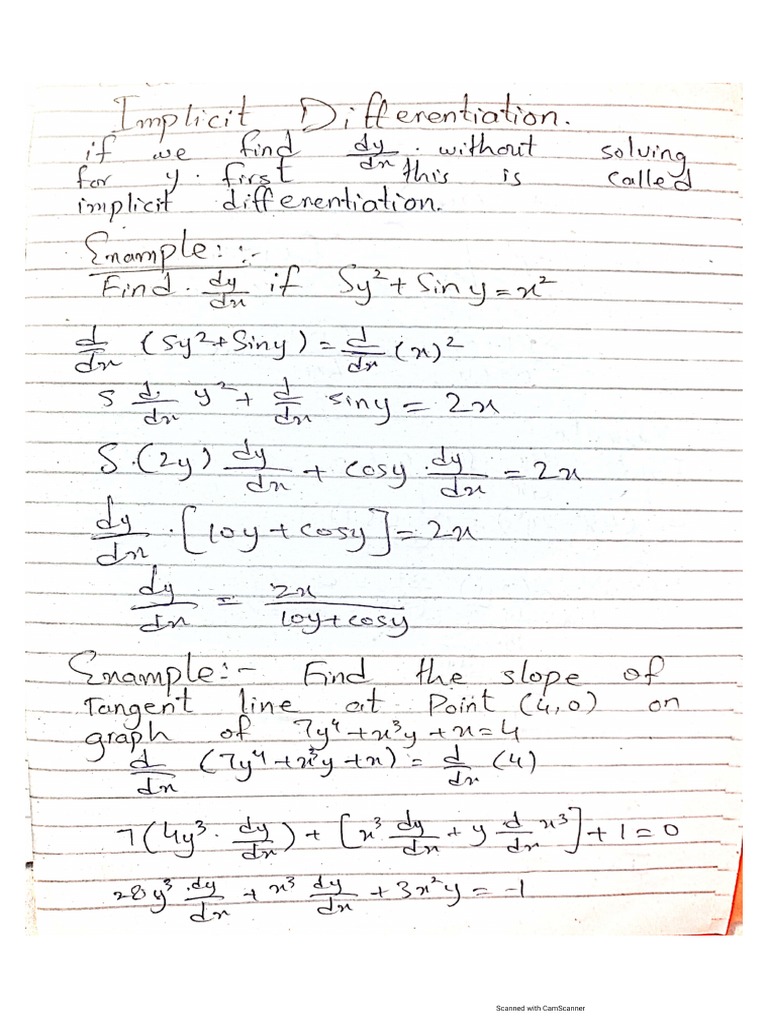 Implicit Differentiation.
if we find dy/dx. without solving
for y. first this is called
implicit differentiation.
Example::-
Find. dy/dx if 5y²+ Siny=x²
d/dx (5y²+Siny)=d/dx(x)²
5 d/dx y²+ d/dx siny = 2x
5.(2y) dy/dx + cosy.dy/dx = 2x
dy/dx.[10y+cosy]=2x
dy/dx = 2x/10y+cosy
Example:- Find the slope of
Tangent line at Point (4,0) on
graph of 7y⁴+x³y+x=4
d/dx (7y⁴+x³y+x)= d/dx (4)
7(4y³. dy/dx)+[x³ dy/dx + y d/dx x³]+1=0
28y³.dy/dx +x³ dy/dx +3x²y=-1
Scanned with CamScanner